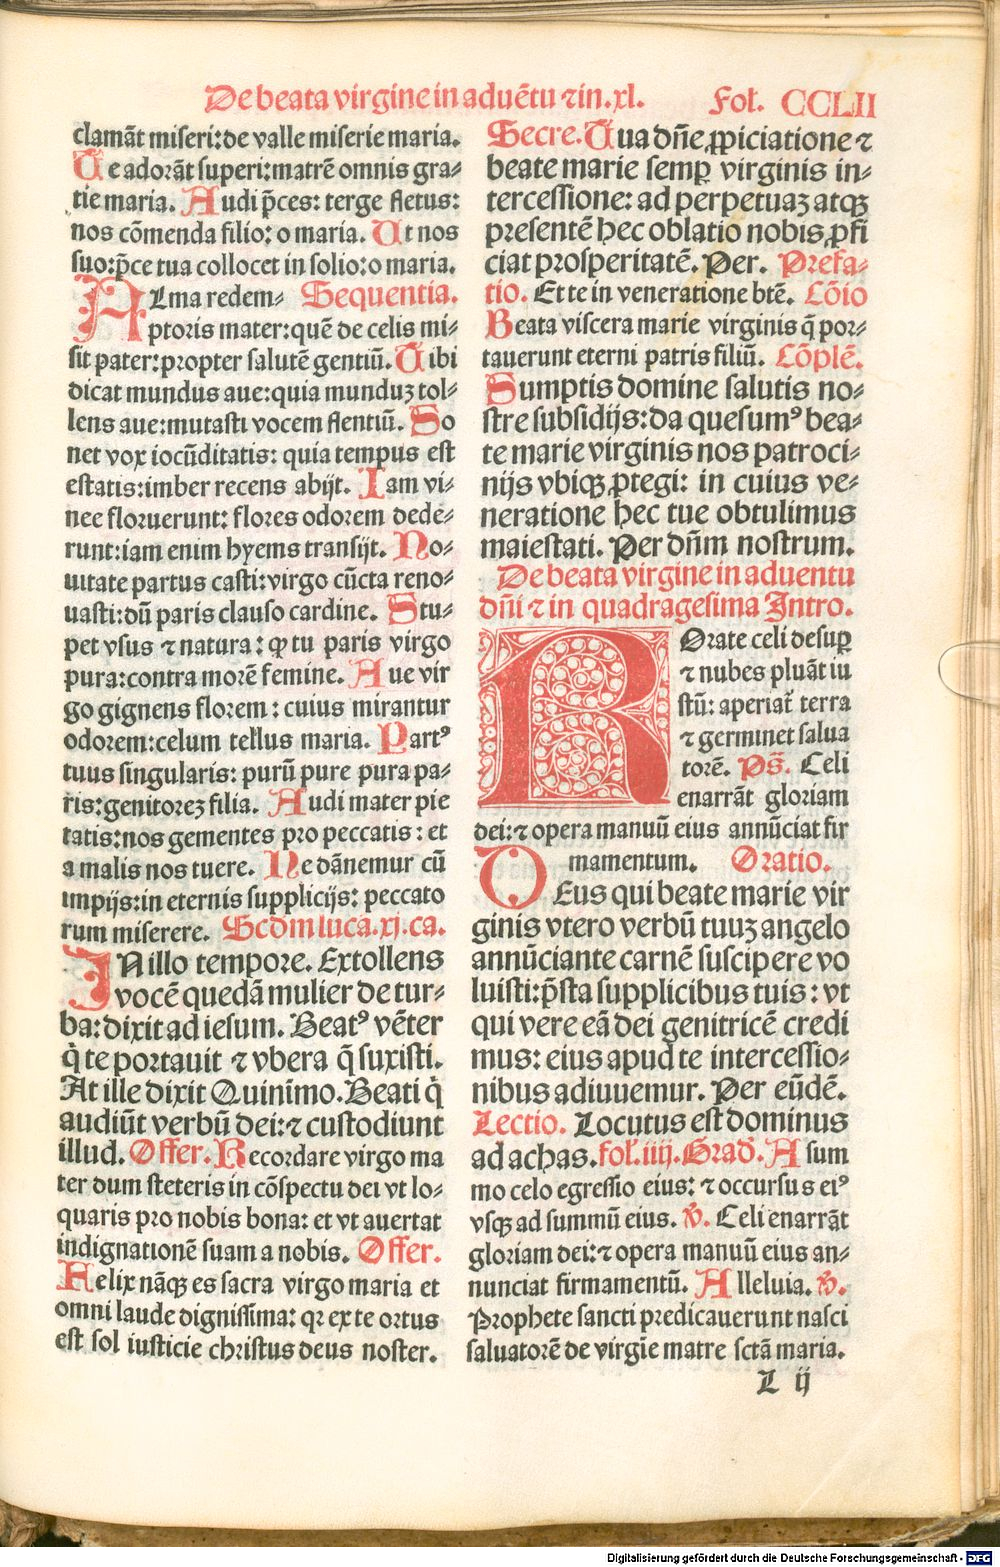 De beata virgine in aduētu ⁊ in .xl. Fol. CCLII
clamāt miseri: de valle miserie maria.
Te adorāt superi: matrē omnis gra⸗
tie maria. Audi p̄ces: terge fletus:
nos cōmenda filio: o maria. Ut nos
suo: p̄ce tua collocet in solio: o maria.
ALma redem⸗ Sequentia.
ptoris mater: quē de celis mi⸗
sit pater: propter salutē gentiū. Tibi
dicat mundus aue: quia munduꝫ tol⸗
lens aue: mutasti vocem flentiū. So
net vox iocūditatis: quia tempus est
estatis: imber recens abijt. Iam vi⸗
nee floruerunt: flores odorem dede⸗
runt: iam enim hyems transijt. No⸗
uitate partus casti: virgo cūcta reno⸗
uasti: dū paris clauso cardine. Stu⸗
pet vsus ⁊ natura: ꝙ tu paris virgo
pura: contra morē femine. Aue vir
go gignens florem: cuius mirantur
odorem: celum tellus maria. Partꝰ
tuus singularis: purū pure pura pa⸗
ris: genitoreꝫ filia. Audi mater pie
tatis: nos gementes pro peccatis: et
a malis nos tuere. Ne dānemur cū
impijs: in eternis supplicijs: peccato
rum miserere. Scdm luca. xj. ca.
IN illo tempore. Extollens
vocē quedā mulier de tur⸗
ba: dixit ad iesum. Beatꝰ vēter
q̇ te portauit ⁊ vbera q̄ suxisti.
At ille dixit Quinīmo. Beati q̇
audiūt verbū dei: ⁊ custodiunt
illud. Offer. Recordare virgo ma
ter dum steteris in cōspectu dei vt lo⸗
quaris pro nobis bona: et vt auertat
indignationē suam a nobis. Offer.
Felix nāqꝫ es sacra virgo maria et
omni laude dignissima: qꝛ ex te ortus
est sol iusticie christus deus noster.
Secre. Tua dn̄e ꝓpiciatione ⁊
beate marie semꝑ virginis in⸗
tercessione: ad perpetuaꝫ atqꝫ
presentē hec oblatio nobis ꝓfi
ciat prosperitatē. Per. Prefa⸗
tio. Et te in veneratione btē. Cōio
Beata viscera marie virginis q̄ por⸗
tauerunt eterni patris filiū. Cōplē.
Sumptis domine salutis no⸗
stre subsidijs: da quesumꝰ bea⸗
te marie virginis nos patroci⸗
nijs vbiqꝫ ꝓtegi: in cuius ve⸗
neratione hec tue obtulimus
maiestati. Per dn̄m nostrum.
De beata virgine in aduentu
dn̄i ⁊ in quadragesima Intro.
ROrate celi desuꝑ
⁊ nubes pluāt iu
stū: aperiat᷑ terra
⁊ germinet salua
torē. Ps̄. Celi
enarrāt gloriam
dei: ⁊ opera manuū eius annūciat fir
mamentum. Oratio.
DEus qui beate marie vir
ginis vtero verbū tuuꝫ angelo
annūciante carnē suscipere vo
luisti: p̄sta supplicibus tuis: vt
qui vere eā dei genitricē credi
mus: eius apud te intercessio⸗
nibus adiuuemur. Per eūdē.
Lectio. Locutus est dominus
ad achas. fol. iiij. Grad. A sum
mo celo egressio eius: ⁊ occursus eiꝰ
vsqꝫ ad summū eius. ℣. Celi enarrāt
gloriam dei: ⁊ opera manuū eius an⸗
nunciat firmamentū. Alleluia. ℣.
Prophete sancti predicauerunt nasci
saluatorē de virgīe matre sctā maria.
L ij
Digitalisierung gefördert durch die Deutsche Forschungsgemeinschaft - DFG